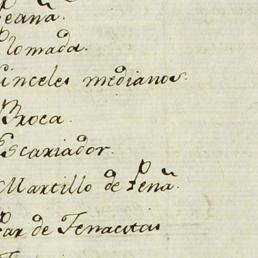 Peana.
Plomada.
Cinceles medianos.
Broca.
Escariador.
Martillo de Peña.
Par de Tenacitas